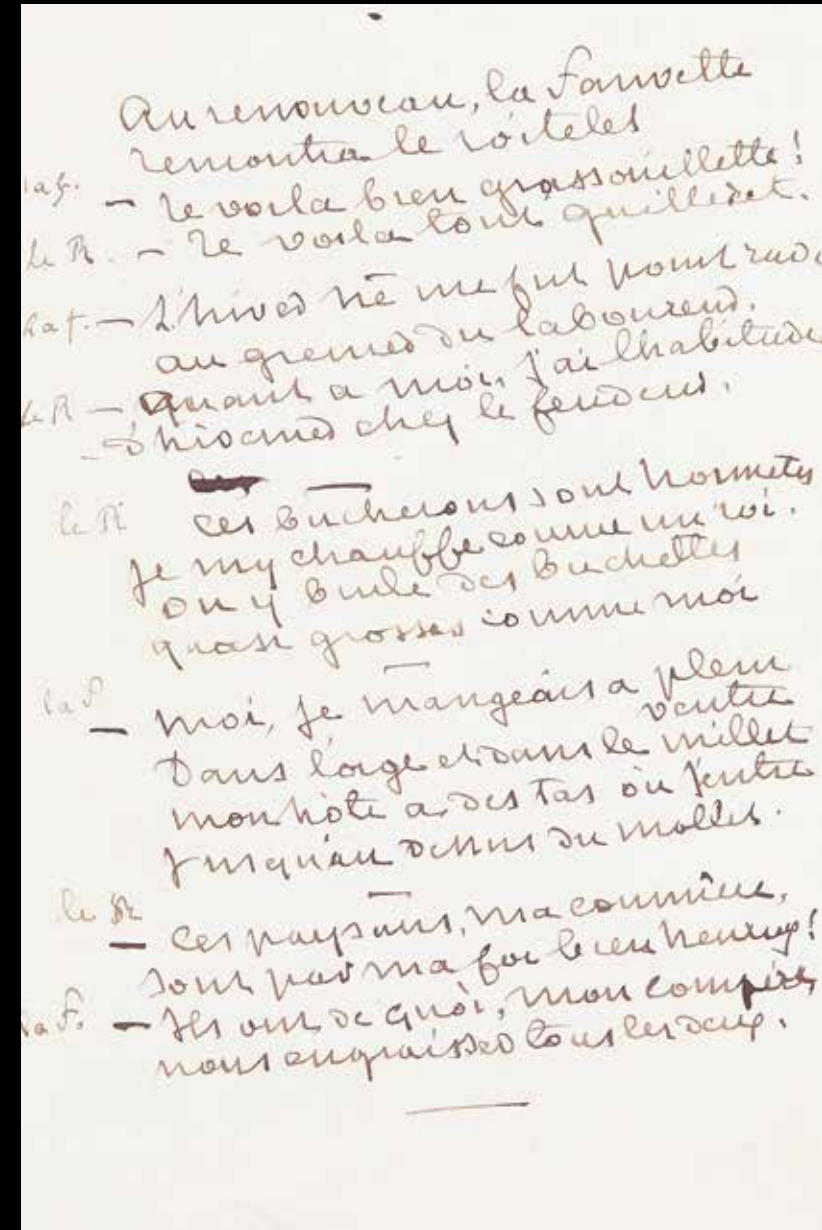 Au renouveau, la Fauvette
remontra le roitelet
la f. — Te voila bien grassouillette !
Le R. — Te voila tout guilleret.
La f. — L'hiver ne me fut point rude
au grenier du laboureur.
Le R — Quant a moi, j'ai l'habitude
— D'hiverner chez le fendeur.
le R ces bucherons sont honnetes
Je m'y chauffe comme un roi.
On y brule des buchettes
quasi grosses comme moi
la f — Moi, je mangeais a plein
ventre
Dans l'orge et dans le millet
mon hôte a des tas où j'entre
Jusqu'au dessus du mollet.
le R — Ces paysans, ma commère,
sont par ma foi bien heureux !
La F. — Ils ont de quoi, mon compère,
nous engraisser tous les deux.